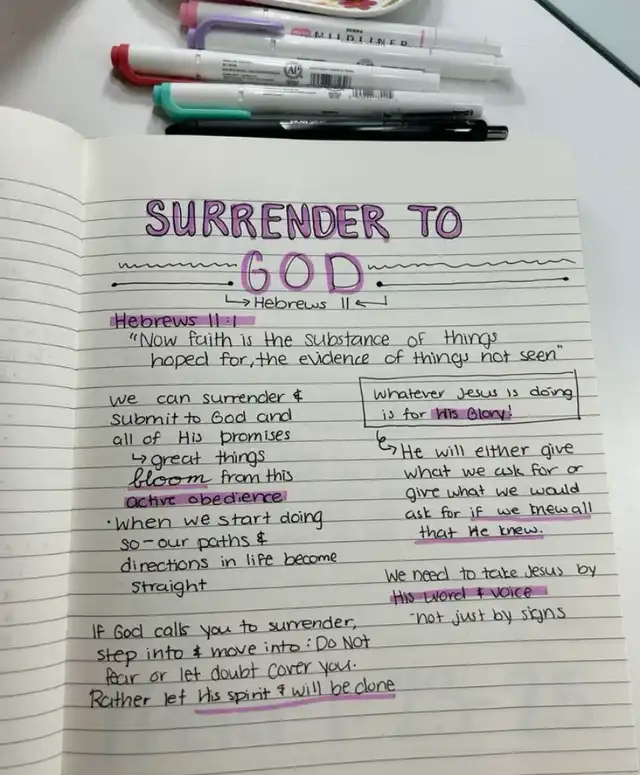 ZEBRA MILDLINER
SURRENDER TO
GOD
↳ Hebrews 11 ↲
Hebrews 11:1
"Now faith is the substance of things
hoped for, the evidence of things not seen"
we can surrender &
submit to God and
all of His promises
↳ great things
bloom from this
active obedience
· when we start doing
so - our paths &
directions in life become
straight
If God calls you to surrender,
step into & move into : Do Not
fear or let doubt cover you.
Rather let His spirit & will be done
whatever Jesus is doing
is for His Glory!
↳ He will either give
what we ask for or
give what we would
ask for if we knew all
that He knew.
We need to take Jesus by
His word & voice
-not just by signs